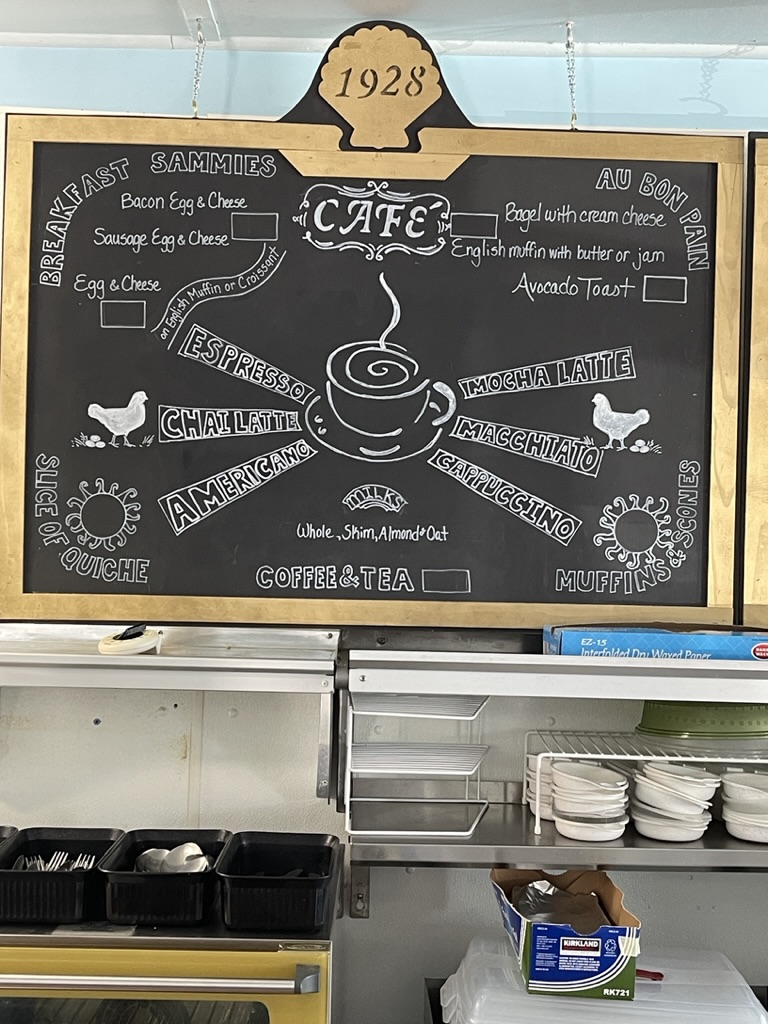 1928
CAFÉ
BREAKFAST SAMMIES
Bacon Egg & Cheese
Sausage Egg & Cheese
Egg & Cheese
on English Muffin or Croissant
AU BON PAIN
Bagel with cream cheese
English muffin with butter or jam
Avocado Toast
ESPRESSO
CHAI LATTE
AMERICANO
MOCHA LATTE
MACCHIATO
CAPPUCCINO
SLICE OF QUICHE
MILKS
Whole, Skim, Almond & Oat
COFFEE & TEA
MUFFINS & SCONES
EZ-15
Interfolded Dry Waxed Paper
KIRKLAND
RK721